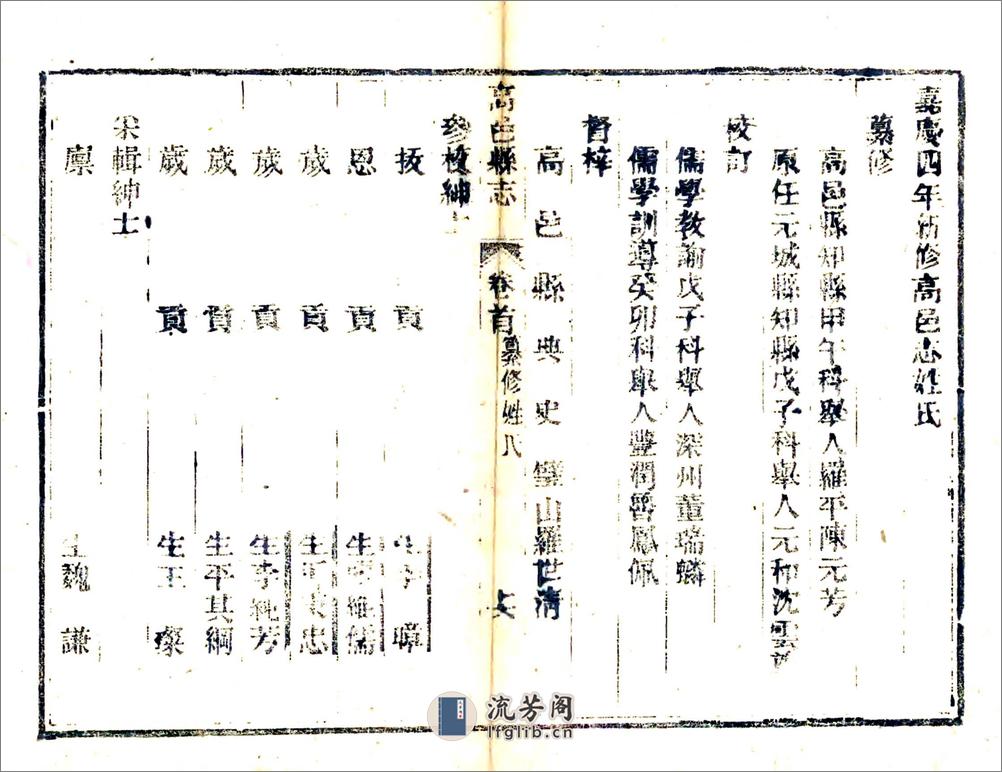 嘉慶四年新修高邑志姓氏
纂修
高邑縣知縣甲午科舉人羅平陳元芳
原任元城縣知縣戊子科舉人元和沈雲
校訂
儒學教諭戊子科舉人深州董瑞麟
儒學訓導癸卯科舉人豐潤魯鳳佩
督梓
高邑縣典史璧山羅世清
高邑縣志 卷首 纂修姓氏
參校紳士
拔貢生李暲
恩貢生 維儒
歲貢生 忠
歲貢生李純芳
歲貢生平其綱
歲貢生王璨
采輯紳士
廩生魏謙
流芳阁
lfglib.cn